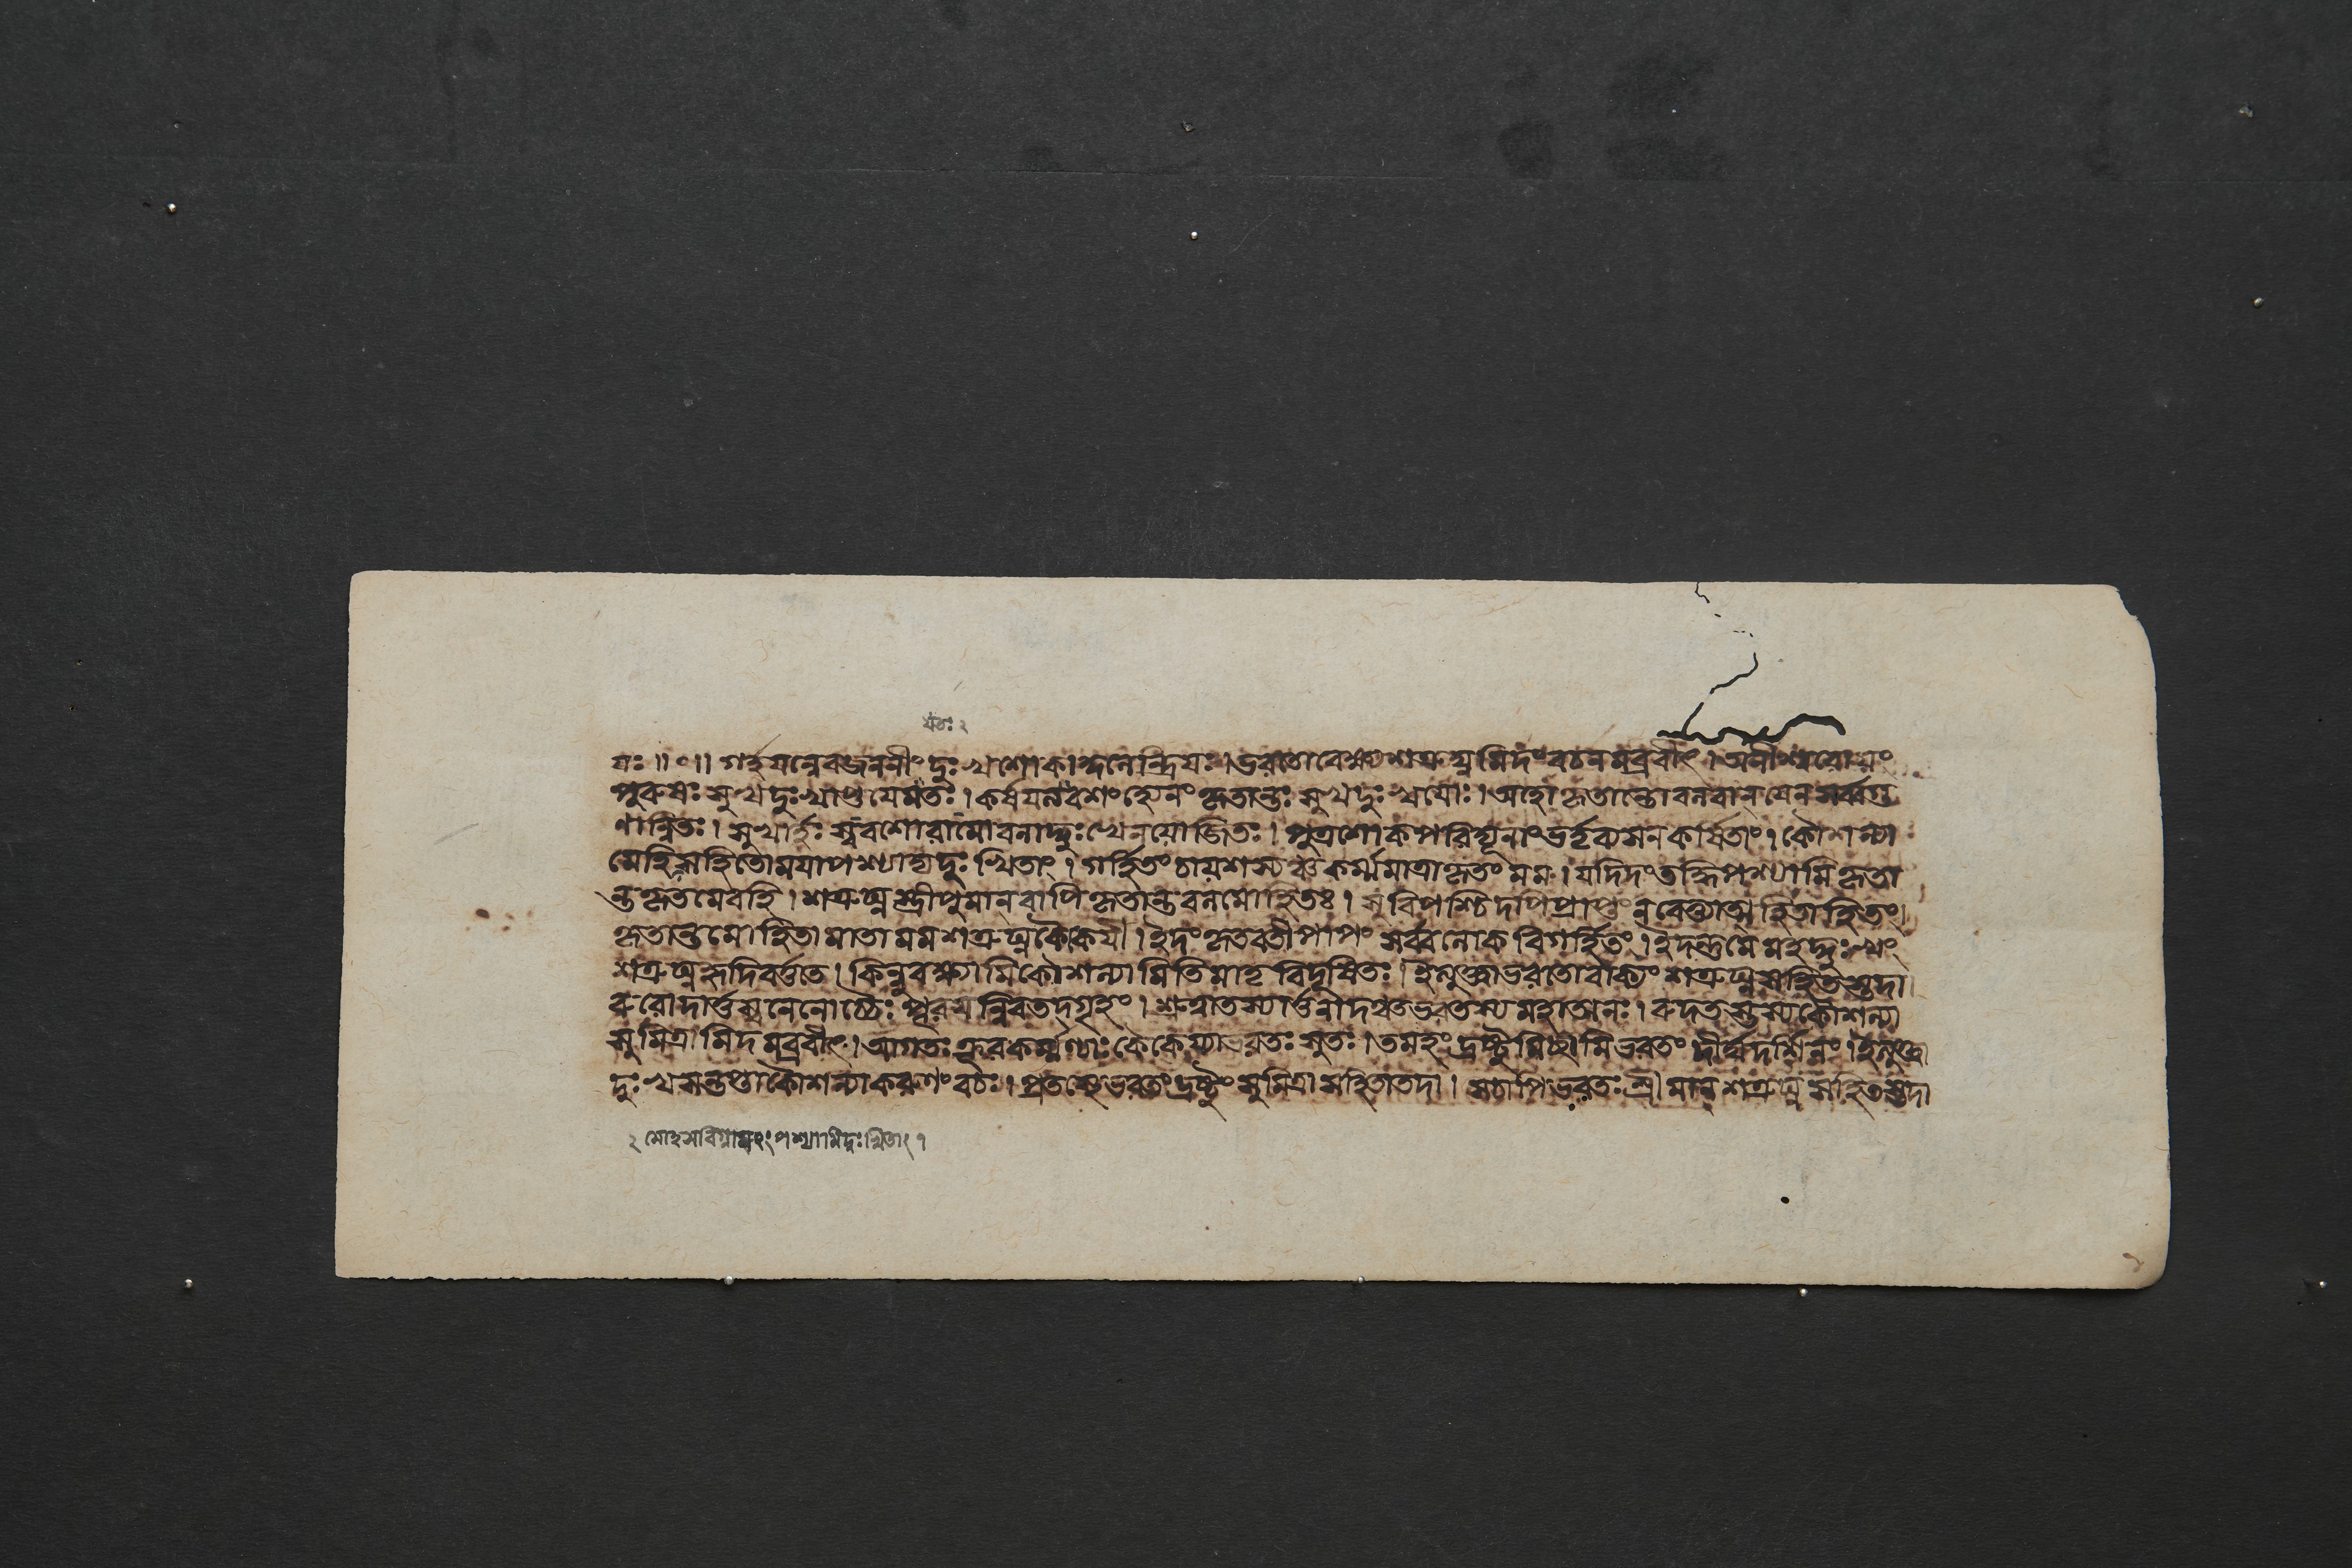 যঃ ॥০॥ গর্হযন্নেবজননীং দুঃখশোকাকুলেন্দ্রিযঃ। ভরতোবেক্ষ্যশত্রুঘ্নমিদং বচনমব্রবীৎ। অনীশ্বরোযং
পুরুষঃ সুখদুঃখাপ্তযেমতঃ। কর্ষযন্নবশং হ্যেনং কৃতান্তঃ সুখদুঃখযোঃ। অহো কৃতান্তোবলবান্ যেন সর্ব্বগু
ণান্বিতঃ। সুখার্হঃ স্ববশোরামোবনাদ্দুঃখেনযোজিতঃ। পুত্রশোকপরিদ্যূনাং ভর্তৃব্যসনকর্ষিতাং। কৌশল্যা
মেহিসহিতোমযাপশ্যাদ্যদুঃখিতাং। গর্হিতং চাযশস্যঞ্চকর্ম্মমাত্রাকৃতং মম। যদিদংতদ্ধিপশ্যামি কৃতা
ন্তকৃতমেবহি। শত্রুঘ্নস্ত্রীপুমান্ বাপি কৃতান্তবলমোহিতঃ। সুবিপশ্চিদপিপ্রাপ্তং নবেত্ত্যাত্মহিতাহিতং।
কৃতান্তমোহিতা মাতা মম শত্রুঘ্নকৈকযী। ইদং কৃতবতীপাপং সর্ব্বলোকবিগর্হিতং। ইদন্তুমে মহদ্দুঃখং
শত্রুঘ্নহৃদিবর্ত্ততে। কিন্নুবক্ষ্যামিকৌশল্যামিতিমাতৃবিদূষিতঃ। ইত্যুক্ত্বাভরতোবাক্যং শত্রুঘ্নসহিতস্তদা।
রুরোদার্ত্তস্বনেনোচ্চৈঃ পূরযন্নিবতদ্গৃহং। শ্রুত্বাতস্যার্ত্তনাদঞ্চভরতস্যমহাত্মনঃ। রুদতস্তস্যকৌশল্যা
সুমিত্রামিদমব্রবীৎ। আগতঃ ক্রূরকর্ম্মণ্যাঃ কৈকেয্যাভরতঃ সুতঃ। তমহং দ্রষ্টুমিচ্ছামিভরতং দীর্ঘদর্শিনং। ইত্যুক্ত্বা
দুঃখসন্তপ্তাকৌশল্যাকরুণং বচঃ। প্রতস্থেভরতং দ্রষ্টুং সুমিত্রা সহিতাতদা। সচাপি ভরতঃ শ্রীমান্ শত্রুঘ্নসহিতস্তদা